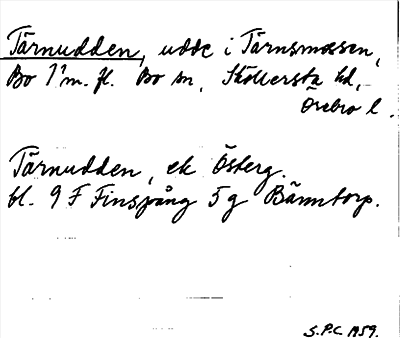 Tärnudden, udde i Tärnsmossen,
Bo 1:1 m. fl. Bo sn, Sköllersta hd,
Örebro l.
Tärnudden, ek Österg.
bl. 9 F Finspång 5 g Bänntorp.
S.P.C. 1959.